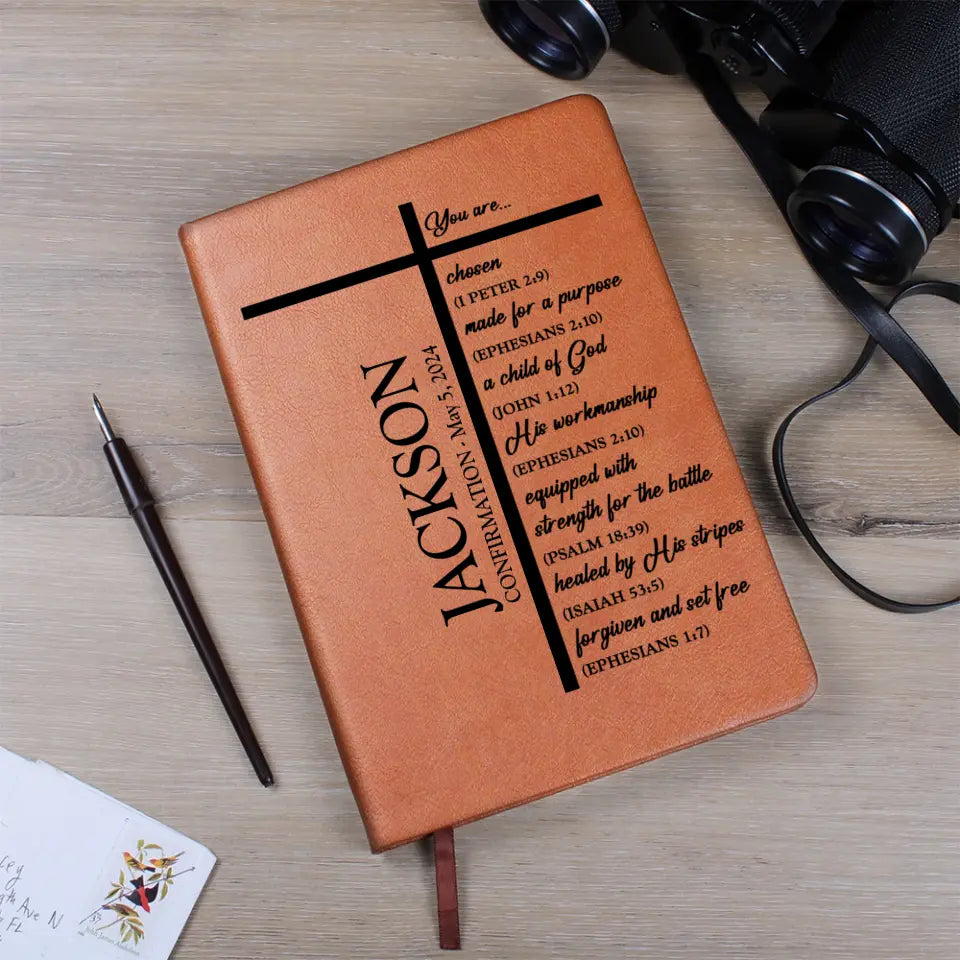 You are...
chosen
(1 PETER 2:9)
made for a purpose
(EPHESIANS 2:10)
a child of God
(JOHN 1:12)
His workmanship
(EPHESIANS 2:10)
equipped with
strength for the battle
(PSALM 18:39)
healed by His stripes
(ISAIAH 53:5)
forgiven and set free
(EPHESIANS 1:7)
JACKSON
CONFIRMATION - May 5, 2024
Ave N
FL
John James Audubon